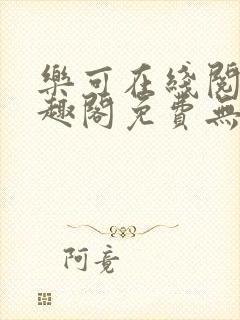 樂可在綫閱
趣閣免費無
阿竟